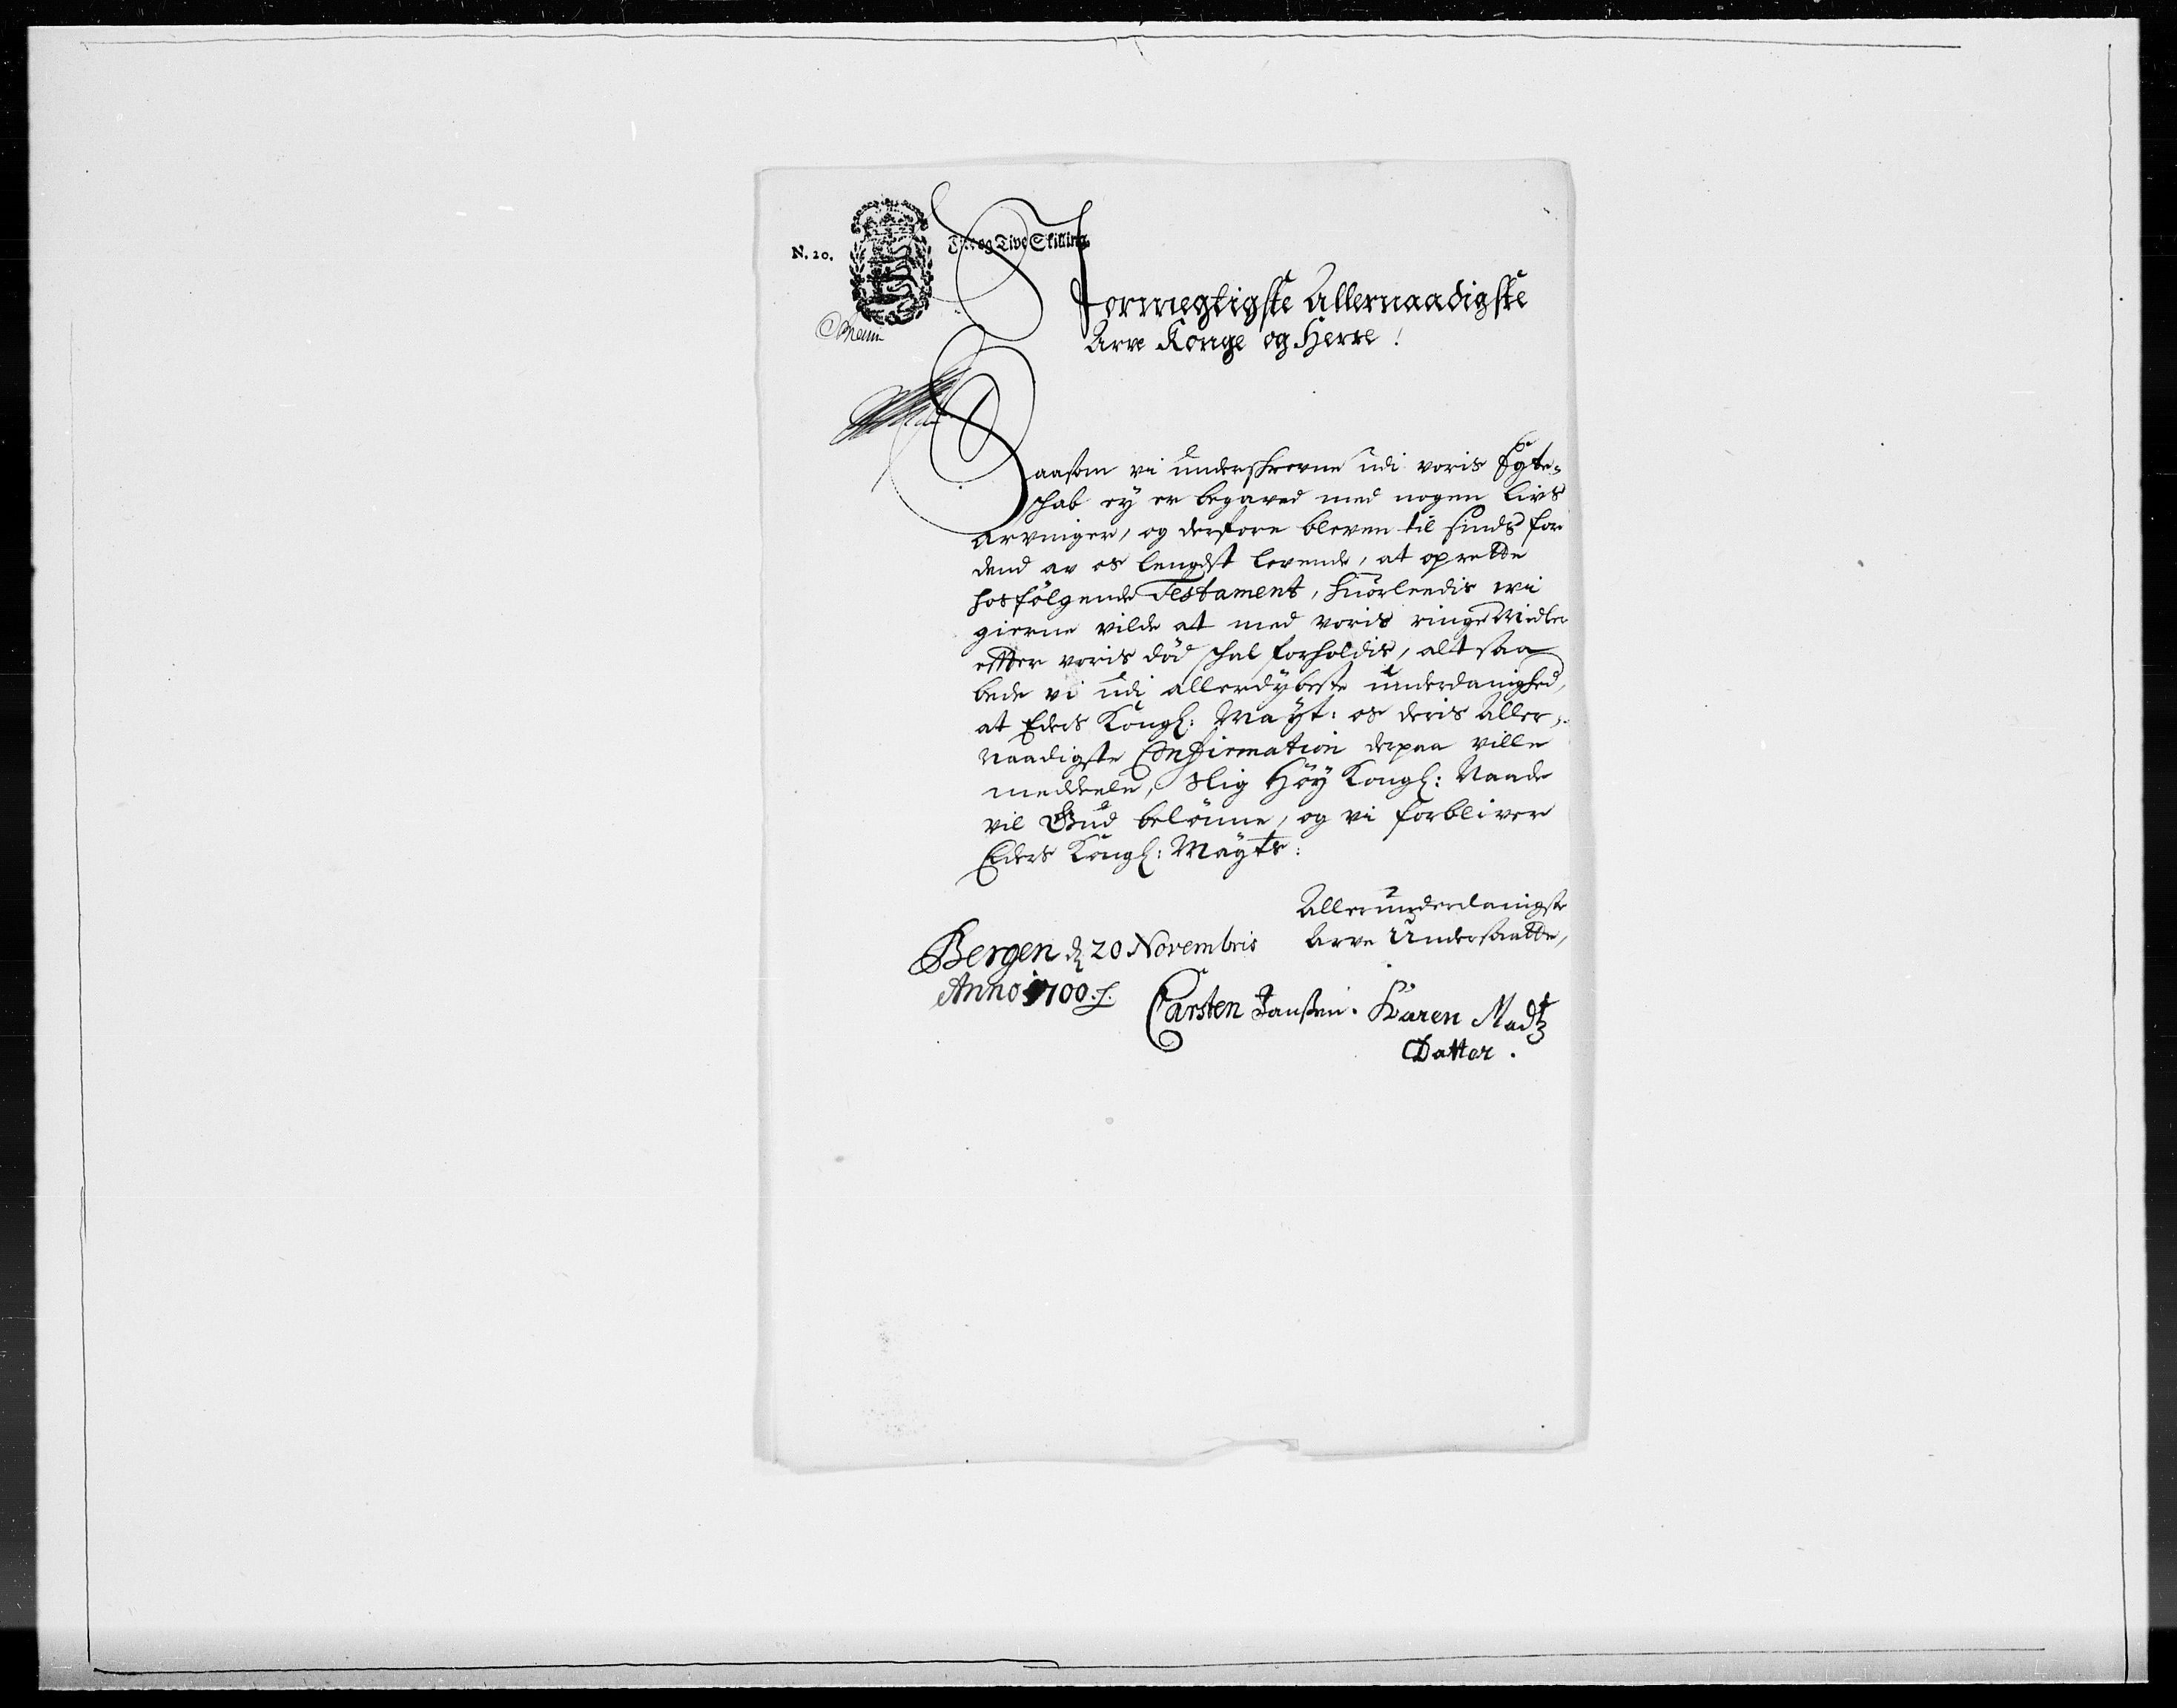 N. 20.
Fire og Tive Skilling
Stormegtigste Allernaadigste
Arve Konge og Herre!
Saasom vi underskrevne udi voris Egte-
schab ey er begaved med nogen Livs
Arvinger, og derfore bleven til sinds for
dend av os lengst levende, at oprette
hosfölgende Testament, huorleedis wi
gierne vilde at med voris ringe Midler
effter voris död schal forholdis, altsaa
bede vi udi allerdybeste underdanighed,
at Eders Kongl: Mayt: os deris Aller-
naadigste Confirmation derpaa ville
meddeele, Slig Höy Kongl: Naade
vil Gud belönne, og vi forbliver
Eders Kongl: Mayts:
Allerunderdanigste
Arve Undersaatte,
Bergen d 20 Novembris
Anno 1700.
Carsten Janßen. Karen Madtz
Datter.